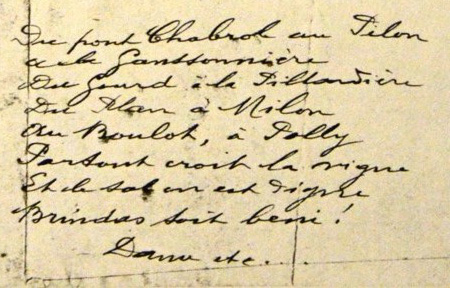 Du pont Chabrol au Pilon
a laGanssonnière
Du Gourd à la Pillardière
Du Plan à Milon
Au Boulot, à Polly
Partout croit la vigne
Et le sol en est digne
Brindas soit beni !
Dans etc....